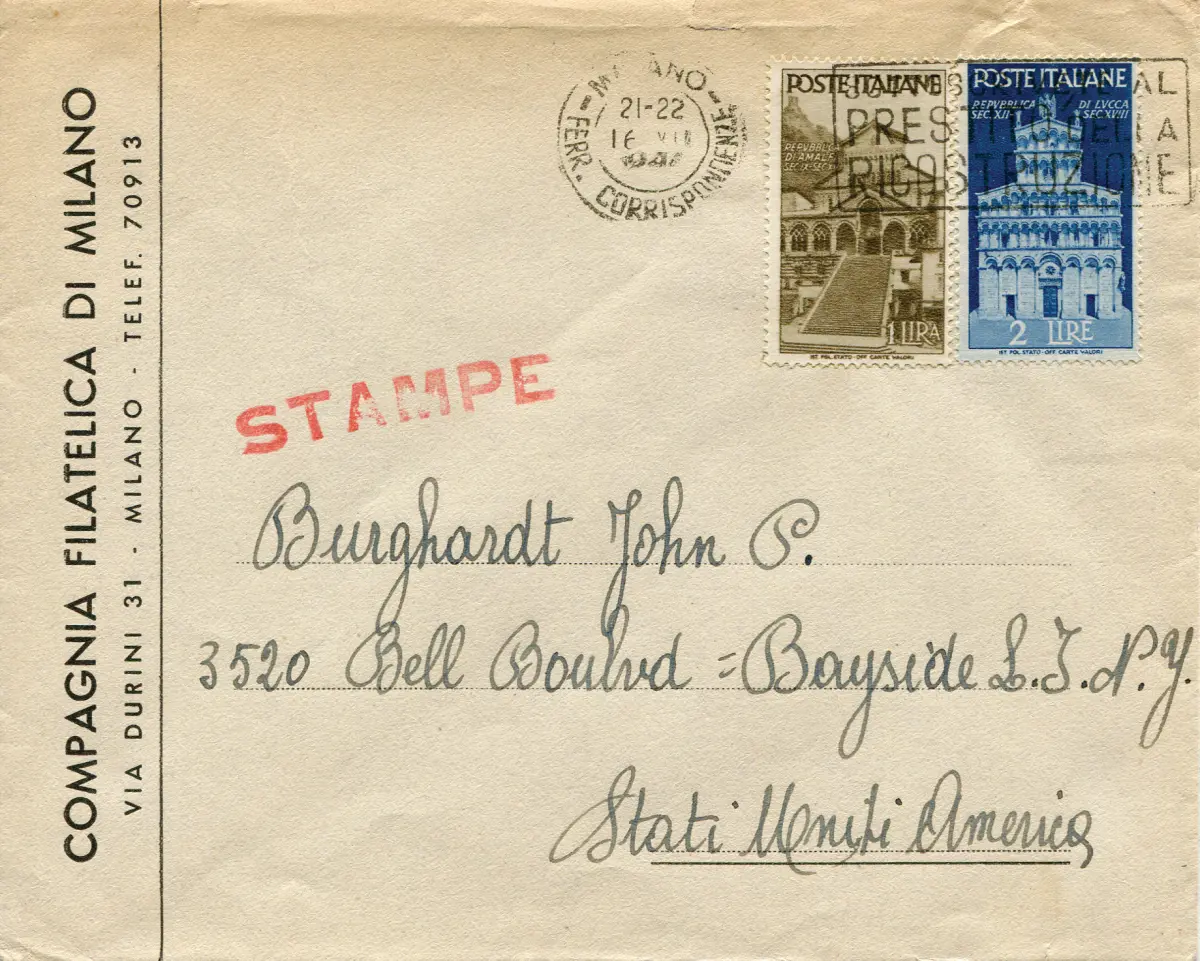 COMPAGNIA FILATELICA DI MILANO
VIA DURINI 31 - MILANO - TELEF. 70913
MILANO
21-22
16 VII
FERR. CORRISPONDENZE
POSTE ITALIANE
REPUBBLICA
DI AMALFI
1 LIRA
IST. POL. STATO - OFF. CARTE VALORI
POSTE ITALIANE
REPVBBLICA DI LVCCA
SEC. XII - SEC. XVIII
2 LIRE
IST. POL. STATO - OFF. CARTE VALORI
SOTTOSCRIVETE AL
PRESTITO DELLA
RICOSTRUZIONE
STAMPE
Burghardt John P.
3520 Bell Boulvd = Bayside L.I. N.Y.
Stati Uniti America